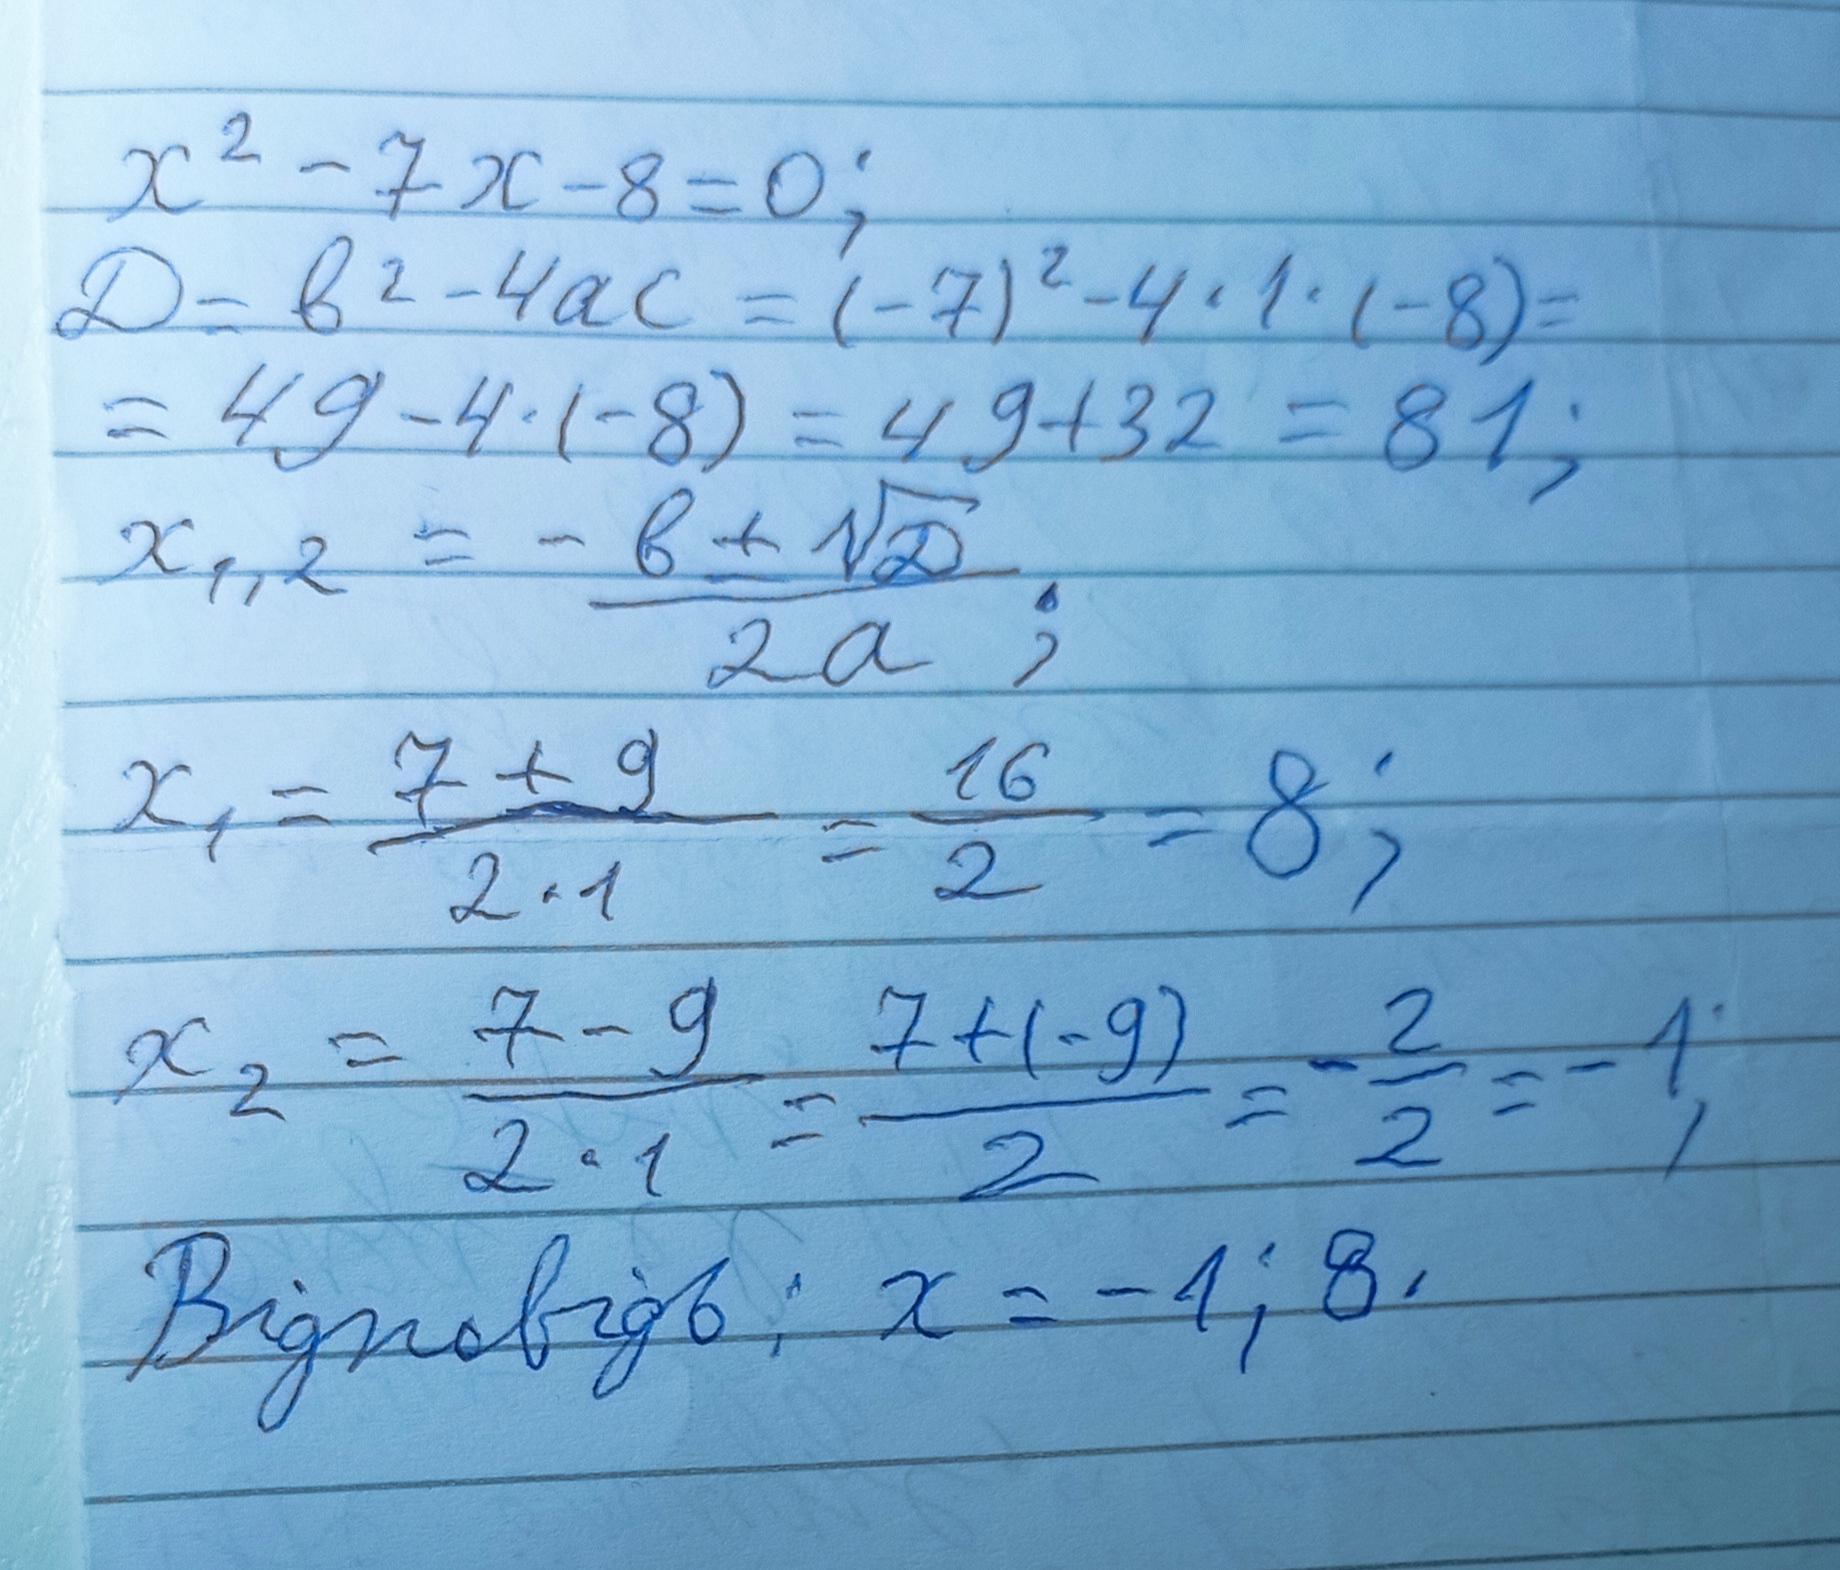 x² - 7x - 8 = 0;
D = b² - 4ac = (-7)² - 4 · 1 · (-8) =
= 49 - 4 · (-8) = 49 + 32 = 81;
x₁,₂ = (-b ± √D) / 2a;
x₁ = (7 + 9) / (2 · 1) = 16/2 = 8;
x₂ = (7 - 9) / (2 · 1) = (7 + (-9)) / 2 = -2/2 = -1;
Відповідь: x = -1; 8.